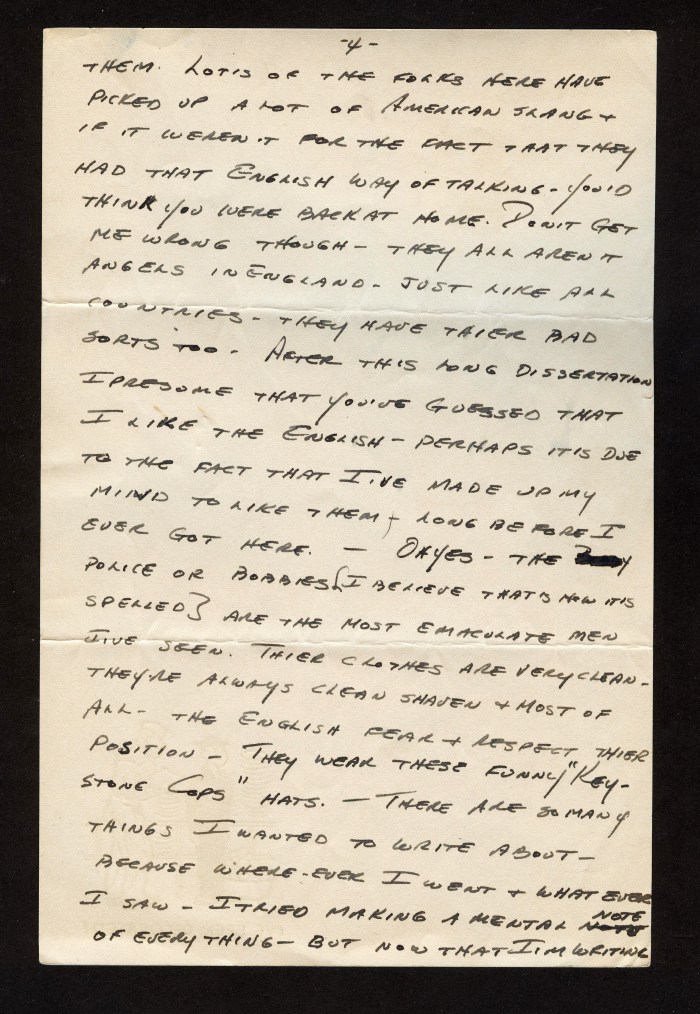 -4-
THEM. LOTS OF THE FOLKS HERE HAVE
PICKED UP A LOT OF AMERICAN SLANG +
IF IT WEREN'T FOR THE FACT THAT THEY
HAD THAT ENGLISH WAY OF TALKING - YOU'D
THINK YOU WERE BACK AT HOME. DON'T GET
ME WRONG THOUGH - THEY ALL AREN'T
ANGELS IN ENGLAND - JUST LIKE ALL
COUNTRIES - THEY HAVE THIER BAD
SORTS TOO. AFTER THIS LONG DISSERTATION
I PRESUME THAT YOU'VE GUESSED THAT
I LIKE THE ENGLISH - PERHAPS IT IS DUE
TO THE FACT THAT I'VE MADE UP MY
MIND TO LIKE THEM, LONG BEFORE I
EVER GOT HERE. - OH YES - THE
POLICE OR BOBBIES {I BELIEVE THAT'S HOW IT IS
SPELLED} ARE THE MOST EMACULATE MEN
I'VE SEEN. THIER CLOTHES ARE VERY CLEAN -
THEY'RE ALWAYS CLEAN SHAVEN + MOST OF
ALL - THE ENGLISH FEAR + RESPECT THIER
POSITION - THEY WEAR THESE FUNNY "KEY-
STONE COPS" HATS. - THERE ARE SO MANY
THINGS I WANTED TO WRITE ABOUT -
BECAUSE WHERE-EVER I WENT + WHAT EVER
I SAW - I TRIED MAKING A MENTAL NOTE
OF EVERYTHING - BUT NOW THAT I'M WRITING